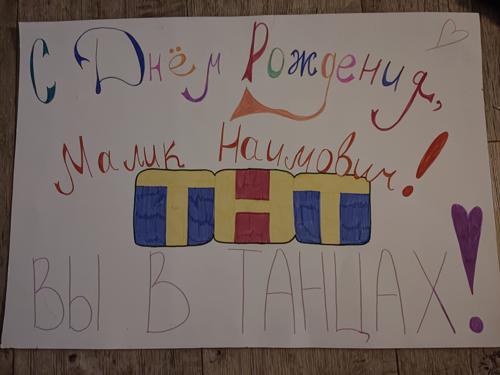 С Днём Рождения,
Малик Наимович!
ТНТ
ВЫ В ТАНЦАХ!